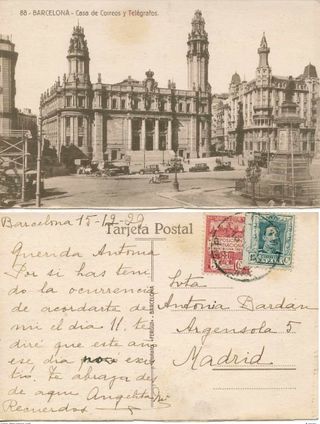 88 - BARCELONA - Casa de Correos y Telégrafos.
Barcelona 15-12-29
Tarjeta Postal
Querida Antonia
Por si has teni
do la ocurrencia
de acordarte de
mi el dia 11, te
diré que este an
ese dia no exis
tió. Te abraza des
de aqui Angelita
Recuerdos
BARCELONA
Srta
Antonia Dardan
Argensola 5
Madrid